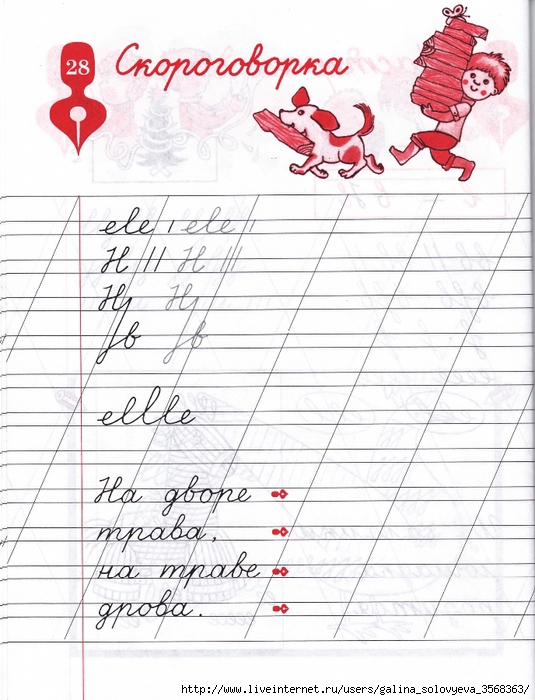 28
Скороговорка
еlе ı еlе ı
Н II Н III
Н Н
в в
еllle
На дворе
трава,
на траве
дрова.
http://www.liveinternet.ru/users/galina_solovyeva_3568363/